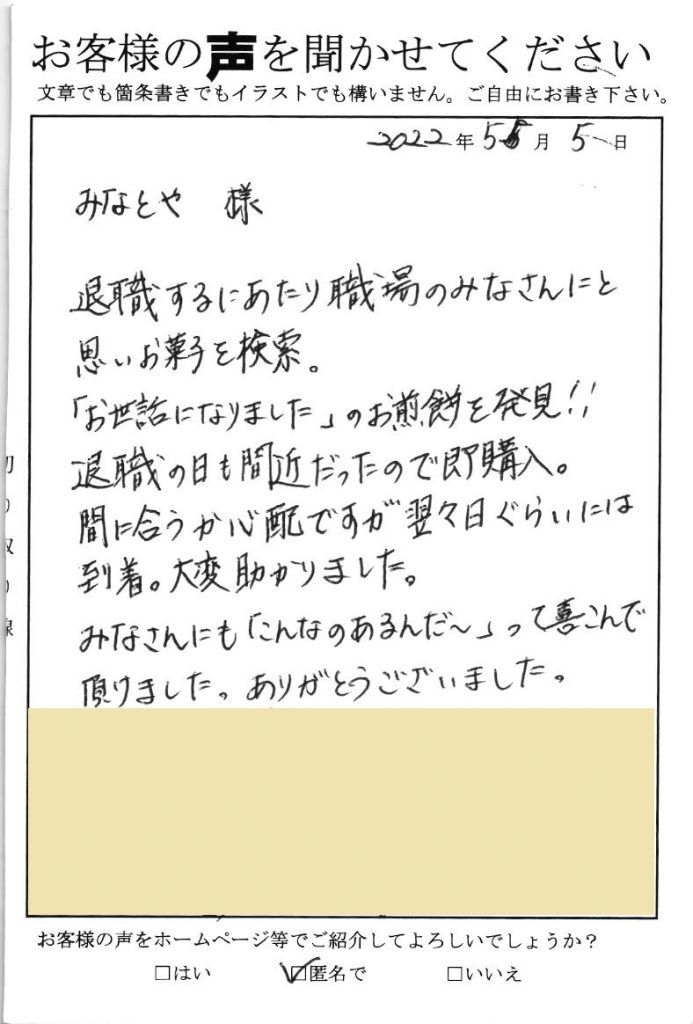 お客様の声を聞かせてください
文章でも箇条書きでもイラストでも構いません。ご自由にお書き下さい。
2022年5月5日
みなとや 様
退職するにあたり職場のみなさんにと
思いお菓子を検索。
「お世話になりました」のお煎餅を発見!!
退職の日も間近だったので即購入。
間に合うか心配ですが翌々日ぐらいには
到着。大変助かりました。
みなさんにも「こんなのあるんだ~」って喜こんで
頂けました。ありがとうございました。
お客様の声をホームページ等でご紹介してよろしいでしょうか?
□はい ☑匿名で □いいえ